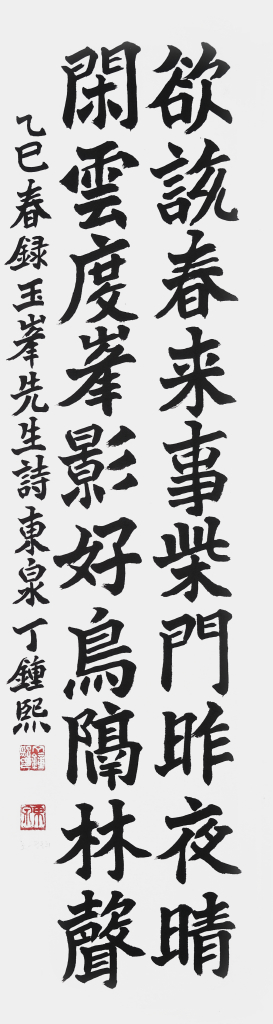 欲說春来事柴門昨夜晴
閑雲度峯影好鳥隔林聲
乙巳春録玉峯先生詩東泉丁鍾熙